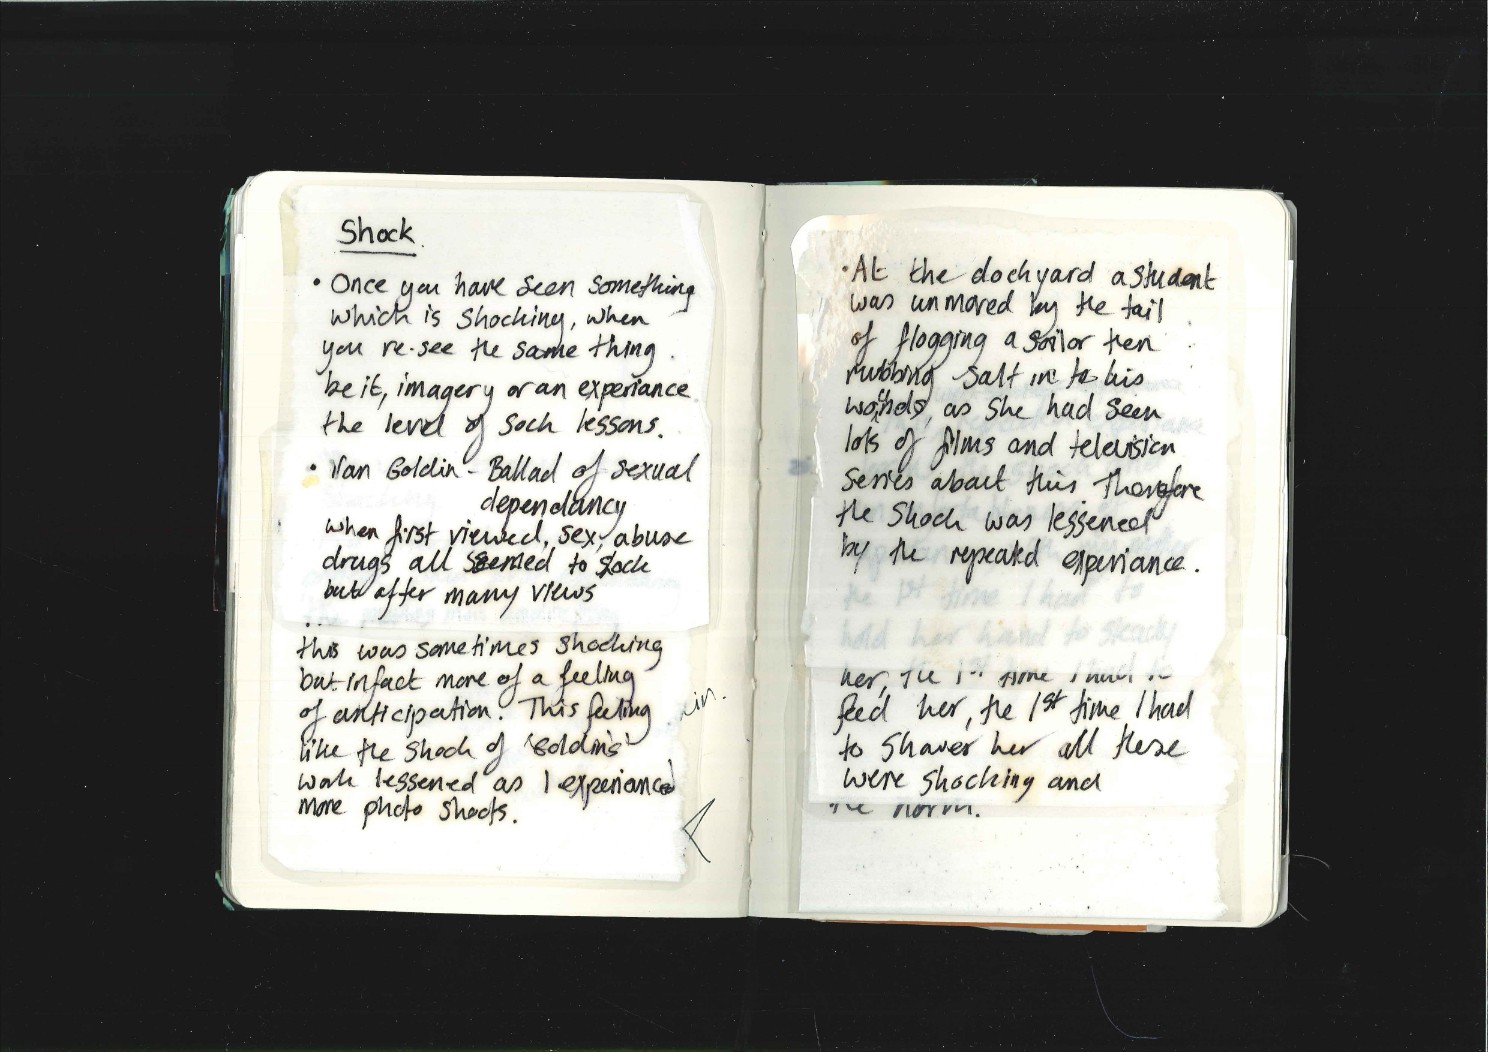 Shock.
• Once you have seen something
which is shocking, when
you re-see the same thing.
be it, imagery or an experiance
the level of sock lessons.
• Nan Goldin - Ballad of sexual
dependancy
when first viewed, sex, abuse
drugs all seemed to sock
but after many views
this was sometimes shocking
but infact more of a feeling
of anticipation. This feeling
like the shock of 'Goldin's'
work lessened as I experianced
more photo shoots.
• At the dockyard a student
was unmoved by the tail
of flogging a sailor then
rubbing salt in to his
wounds, as she had seen
lots of films and television
series about this therefore
the shock was lessened
by the repeated experiance.
the 1st time I had to
hold her hand to steady
her, the 1st time I had to
feed her, the 1st time I had
to shower her all these
were shocking and
the norm.